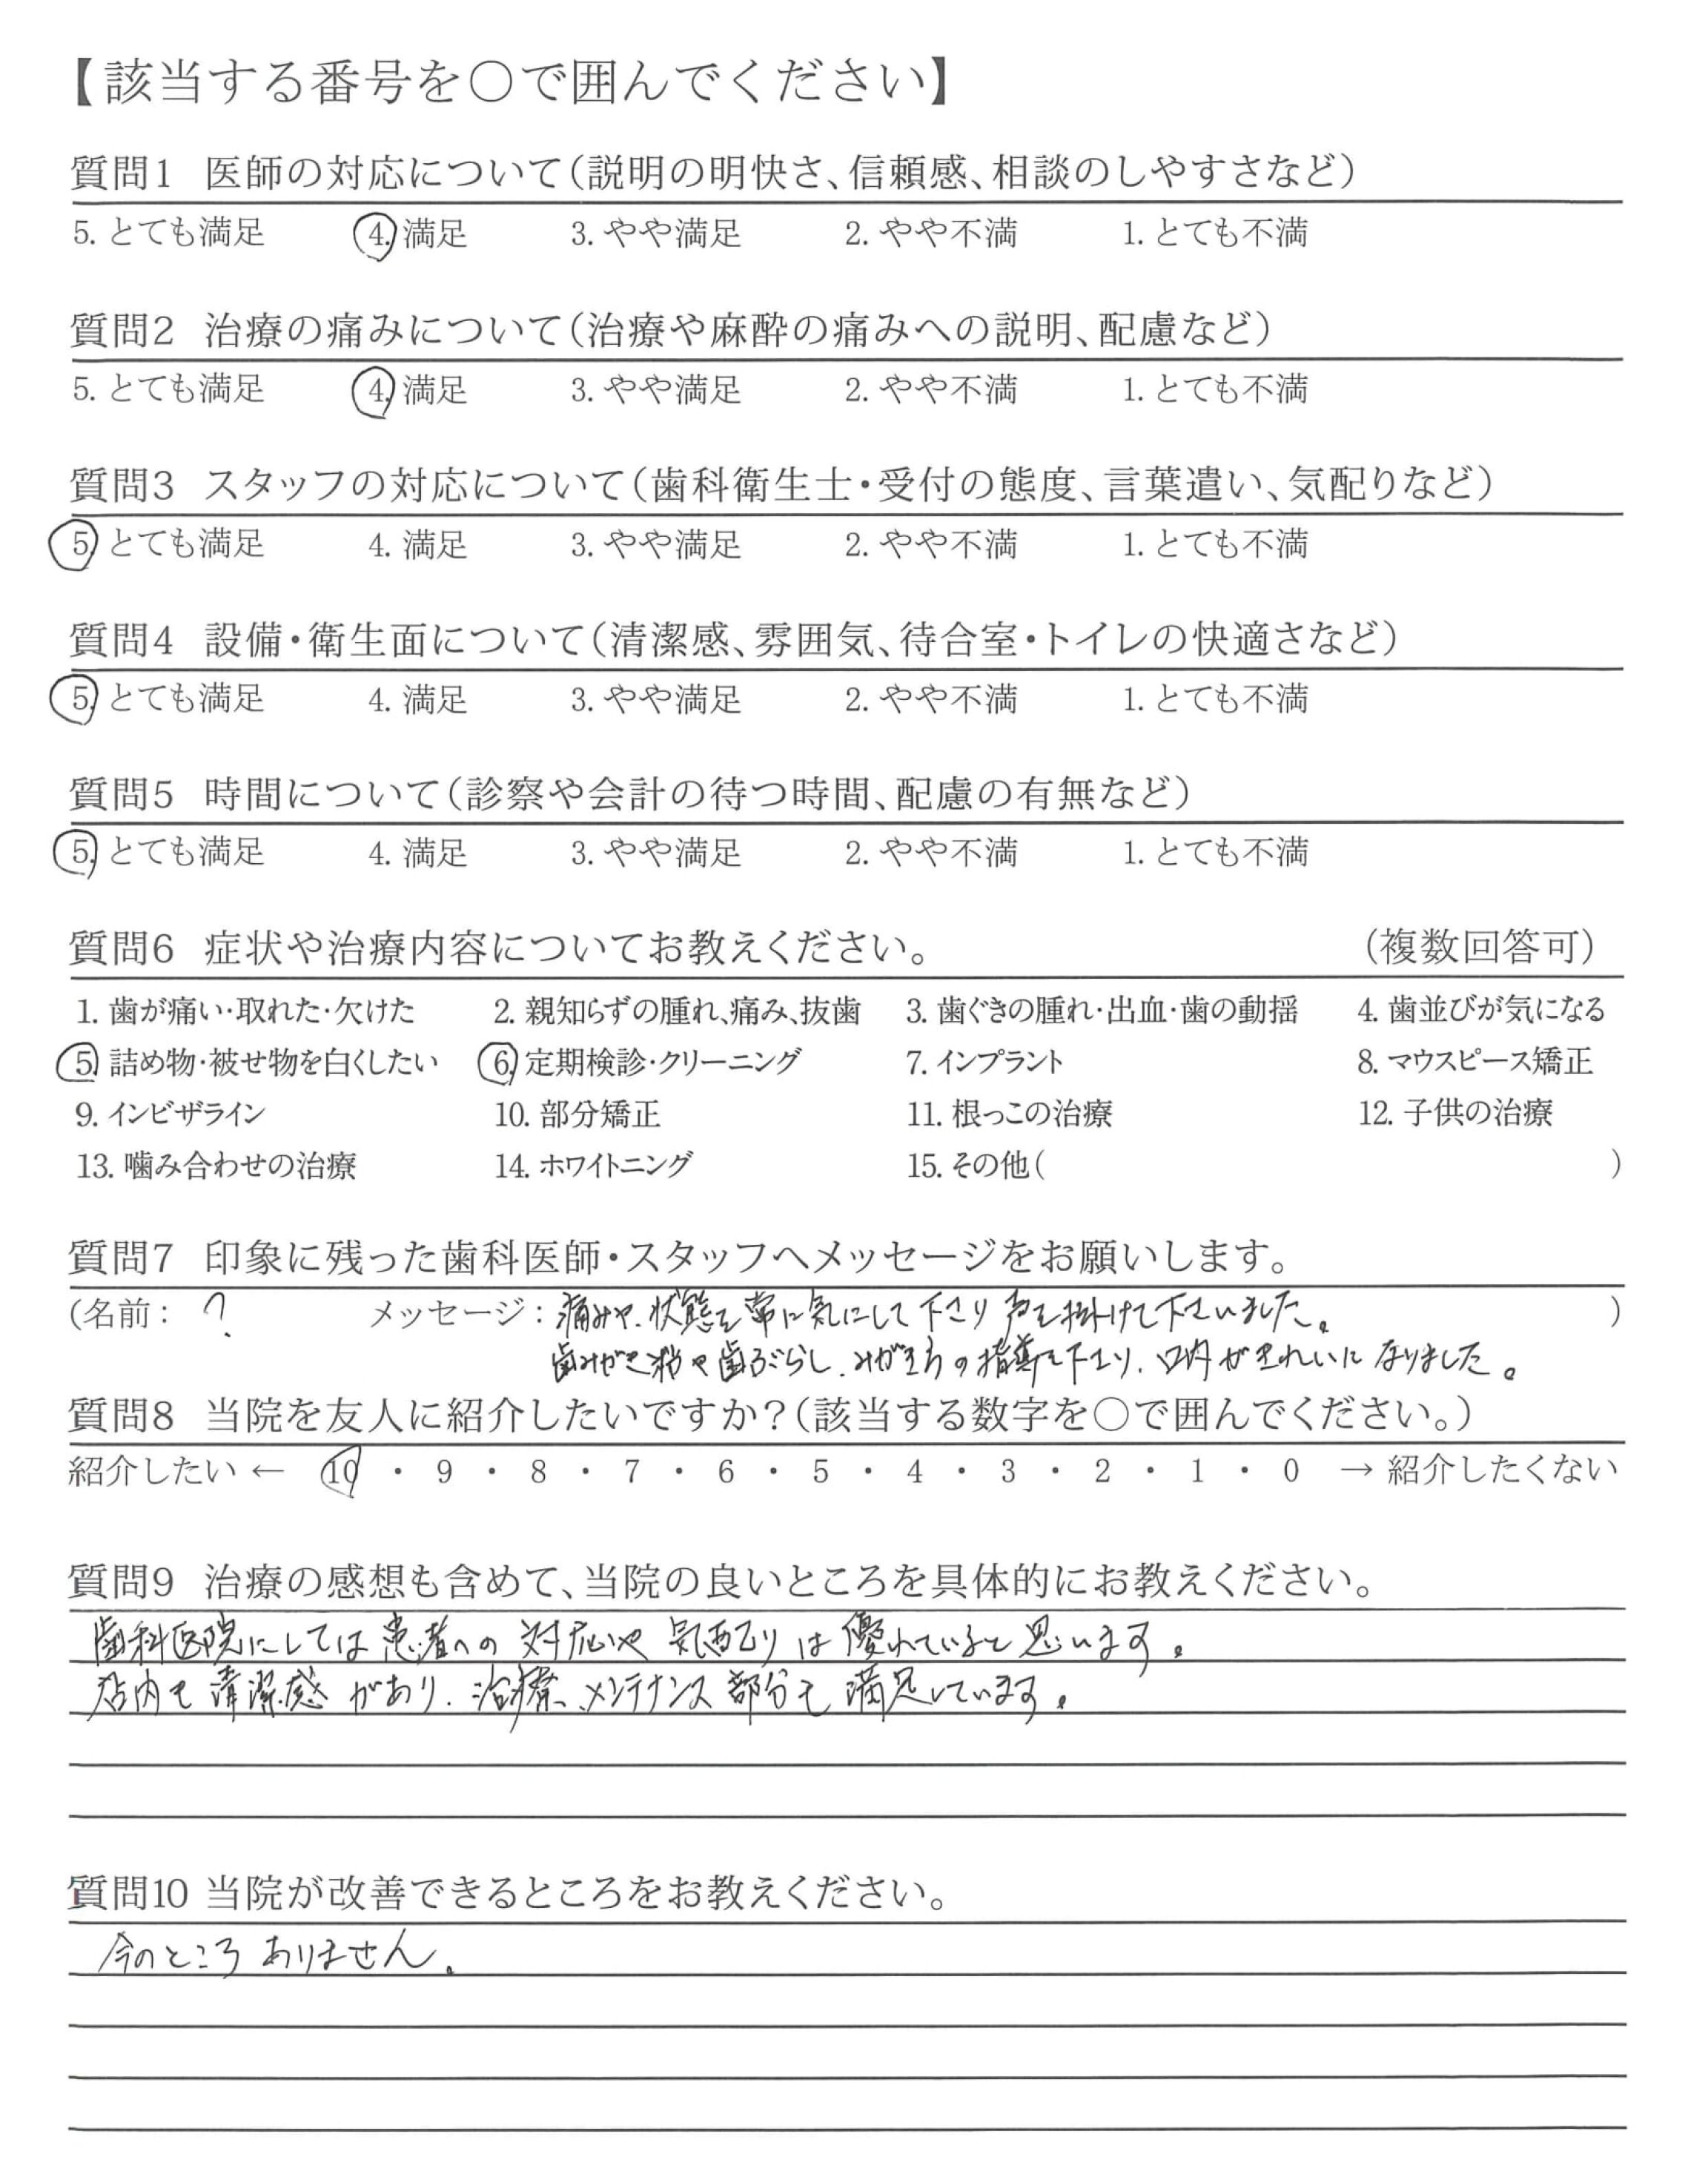 【該当する番号を○で囲んでください】
質問1 医師の対応について(説明の明快さ、信頼感、相談のしやすさなど)
5. とても満足 4. 満足 3. やや満足 2. やや不満 1. とても不満
質問2 治療の痛みについて(治療や麻酔の痛みへの説明、配慮など)
5. とても満足 4. 満足 3. やや満足 2. やや不満 1. とても不満
質問3 スタッフの対応について(歯科衛生士・受付の態度、言葉遣い、気配りなど)
5. とても満足 4. 満足 3. やや満足 2. やや不満 1. とても不満
質問4 設備・衛生面について(清潔感、雰囲気、待合室・トイレの快適さなど)
5. とても満足 4. 満足 3. やや満足 2. やや不満 1. とても不満
質問5 時間について(診察や会計の待つ時間、配慮の有無など)
5. とても満足 4. 満足 3. やや満足 2. やや不満 1. とても不満
質問6 症状や治療内容についてお教えください。 (複数回答可)
1. 歯が痛い・取れた・欠けた 2. 親知らずの腫れ、痛み、抜歯 3. 歯ぐきの腫れ・出血・歯の動揺 4. 歯並びが気になる
5. 詰め物・被せ物を白くしたい 6. 定期検診・クリーニング 7. インプラント 8. マウスピース矯正
9. インビザライン 10. 部分矯正 11. 根っこの治療 12. 子供の治療
13. 噛み合わせの治療 14. ホワイトニング 15. その他( )
質問7 印象に残った歯科医師・スタッフへメッセージをお願いします。
(名前: ? メッセージ: 痛みや、状態を常に気にして下さり声を掛けて下さいました。 )
歯みがき粉や歯ぶらし、みがき方の指導を下さり、口内がきれいになりました。
質問8 当院を友人に紹介したいですか?(該当する数字を○で囲んでください。)
紹介したい ← 10 ・ 9 ・ 8 ・ 7 ・ 6 ・ 5 ・ 4 ・ 3 ・ 2 ・ 1 ・ 0 → 紹介したくない
質問9 治療の感想も含めて、当院の良いところを具体的にお教えください。
歯科医院にしては患者への対応や気配りは優れていると思います。
店内も清潔感があり、治療、メンテナンス部分も満足しています。
質問10 当院が改善できるところをお教えください。
今のところありません。